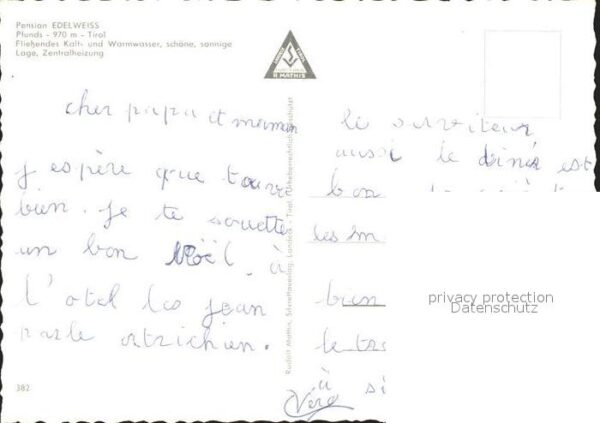 Pension EDELWEISS
Pfunds - 970 m - Tirol
Fließendes Kalt- und Warmwasser, schöne, sonnige
Lage, Zentralheizung
R MATHIS
cher papa et maman
j espère que tou
bien. je te souette
un bon Noël à
l'otel les jean
parle otrichien.
382
Rudolf Mathis, Silvrettaverlag, Landeck - Tirol, Urheberrechtlich geschützt
le serviteur
aussi le diné est
bon
les m
bien
le tro
à si
Véro
privacy protection
Datenschutz